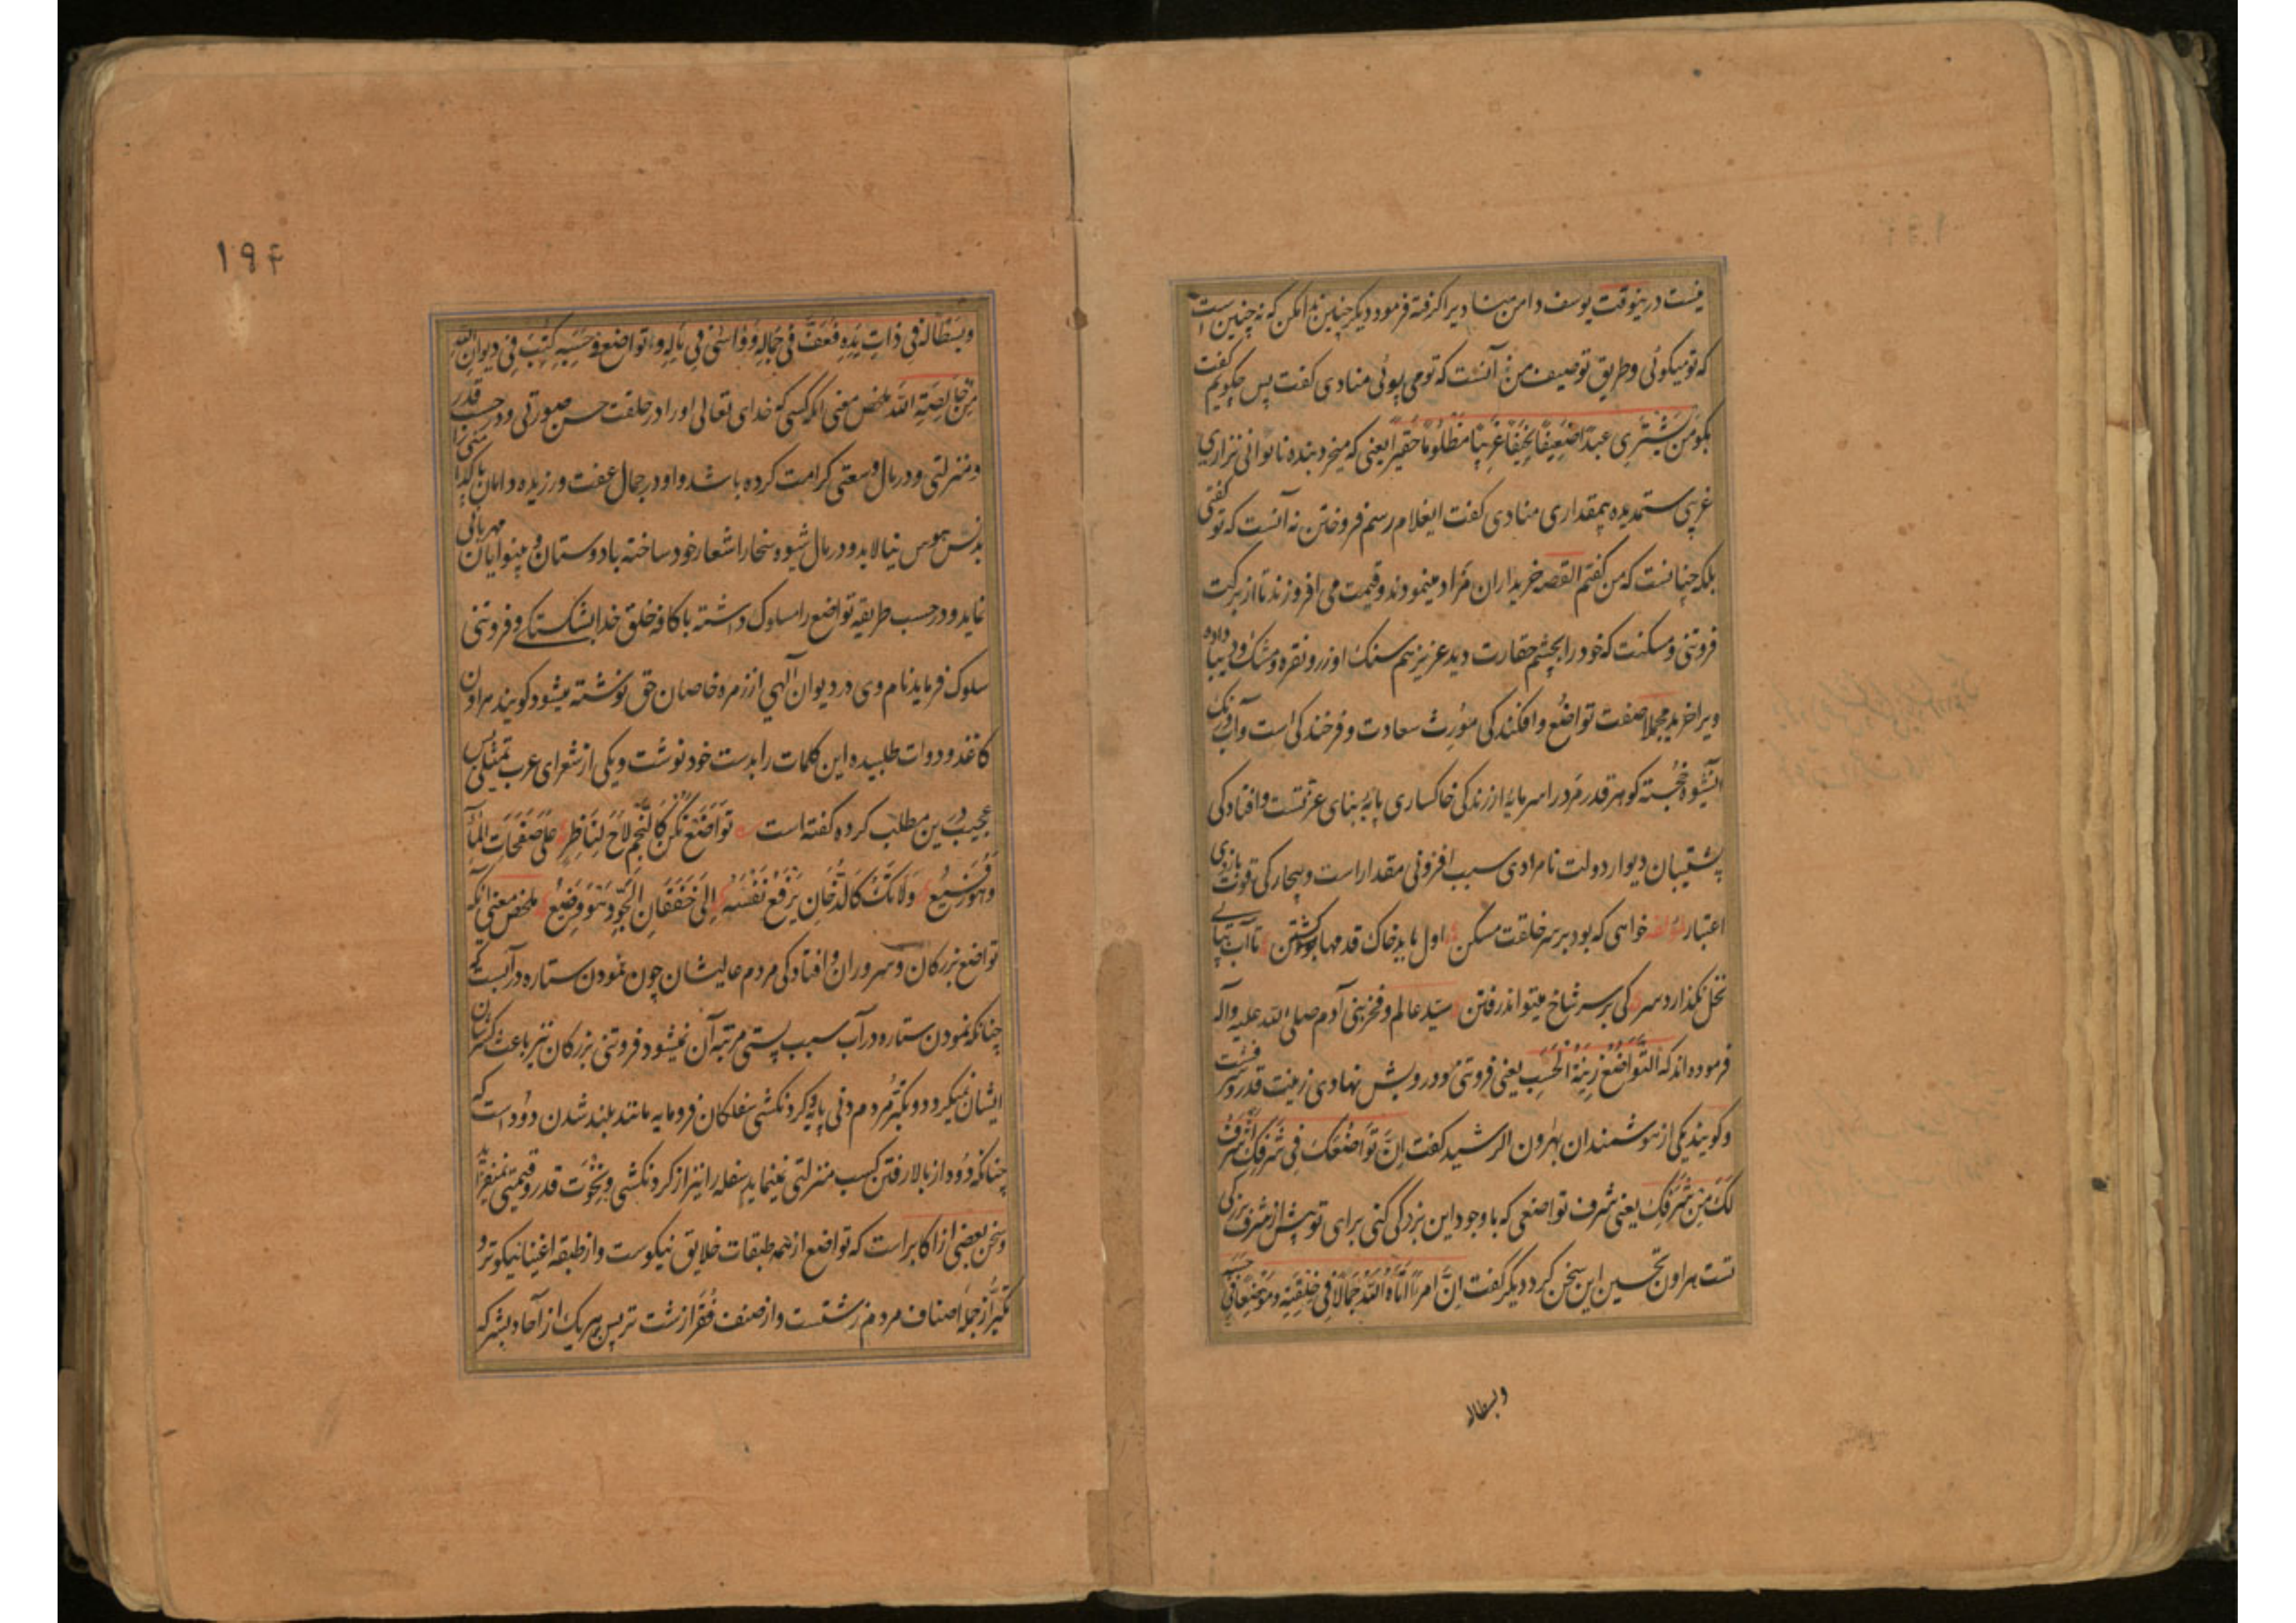 نیست درینوقت یوسف دامن منادیرا کرفته فرمود دیکر چنین ندا مکن که نه چنین است
که تو میکوئی و طریق توصیف من نه آنست که تو می پوئی منادی کفت پس چکویم کفت
بکو من یشتری عبدا ضعیفا نحیفا غریبا مظلوما حقیرا یعنی که میخرد بنده ناتوانی نزاری
غریبی ستمدیده بیمقداری منادی کفت ایغلام رسم فروختن نه آنست که تو کفتی
بلکه چنانست که من کفتم القصه خریداران مزاد مینمودند و قیمت می افزودند تا از برکت
فروتنی و مسکنت که خود را بچشم حقارت دید عزیز هم سنک او زر و نقره و مشک و دیبا داده
ویرا خرید مجملا صفت تواضع و افکندکی مورث سعادت و فرخندکی است و آب و رنک
این شیوه خجسته کوهر قدر مرد را سرمایه ارزندکی خاکساری پایه بنای عزتست و افتادکی
پشتیبان دیوار دولت نامرادی سبب افزونی مقدار است و بیچارکی قوت بازوی
اعتبار لمؤلفه خواهی که بود بر سر خلقت مسکن اول باید خاک قدمها بودن تا آب بپای
نخل نکذارد سر کی بر سر شاخ میتواند رفتن سید عالم و فخر بنی آدم صلی الله علیه واله
فرموده اند که التواضع زینة الحسب یعنی فروتنی و درویش نهادی زینت قدر و
و کویند یکی از هوشمندان بهارون الرشید کفت ان تواضعک فی شرفک اشرف
لک من شرفک یعنی شرف تواضعی که با وجود این بزرکی کنی برای تو بیش از شرف بزرکی
تست هارون تحسین این سخن کرد دیکر کفت ان امرءا اتاه الله جمالا فی خلقته و موضعا فی حسبه
وبسطاله
۱۹۴
وبسطاله فی ذات یده فعف فی جماله وواسی فی ماله وتواضع فی حسبه کتب فی دیوان الله
من خالصة الله ملخص معنی انکه کسی که خدای تعالی او را در خلقت حسن صورتی و در حسب قدر
و منزلتی و در مال وسعتی کرامت کرده باشد و او در جمال عفت ورزیده دامان پاکی را
بدنس هوس نیالاید و در مال شیوه سخا را شعار خود ساخته با دوستان و بینوایان مهربانی
نماید و در حسب طریقه تواضع را مسلوک داشته با کافه خلق خدا بشکستکی و فروتنی
سلوک فرماید نام وی در دیوان آلهی از زمره خاصان حق نوشته میشود کویند هارون
کاغذ و دوات طلبیده این کلمات را بدست خود نوشت و یکی از شعرای عرب تمثیلی بس
عجیب درین مطلب کرده کفته است تواضع تکن کالنجم لاح لناظر علی صفحات الماء
وهو رفیع ولا تک کالدخان یرفع نفسه الی خفقان الجو وهو وضیع ملخص معنی آنکه
تواضع بزرکان و سروران و افتادکی مردم عالیشان چون نمودن ستاره در آبست که
چنانکه نمودن ستاره در آب سبب پستی مرتبه آن نمیشود فروتنی بزرکان نیز باعث کسر شان
ایشان نمیکردد و تکبر مردم دنی پایه و کردنکشی سفلکان فرومایه مانند بلند شدن دود است که
چنانکه دود از بالا رفتن کسب منزلتی نمینماید سفله را نیز از کردنکشی و نخوت قدر و قیمتی نمیفزاید
و سخن بعضی از اکابر است که تواضع از همه طبقات خلایق نیکوست و از طبقه اغنیا نیکوتر و
تکبر از جمله اصناف مردم زشتست و از صنف فقرا زشت تر پس بهر یک از آحاد بشر که